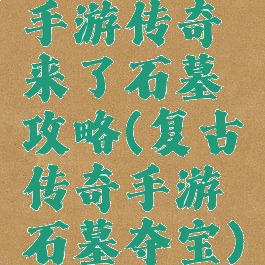 手游传奇
来了石墓
攻略(复古
传奇手游
石墓夺宝)